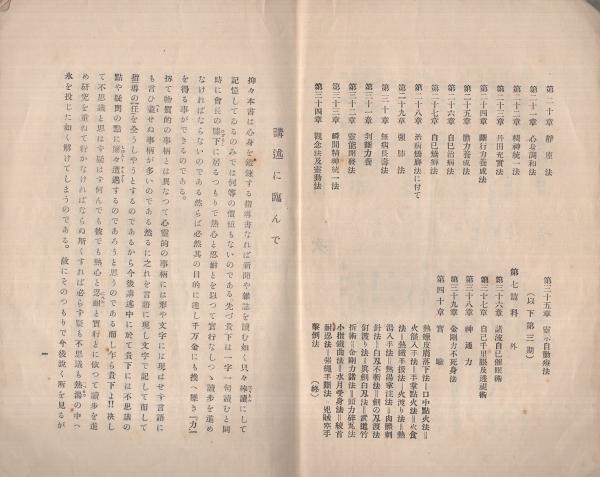 第二十章 靜座法
第二十一章 心身調和法
第二十二章 精神統一法
第二十三章 丹田充實法
第二十四章 斷行力養成法
第二十五章 膽力養成法
第二十六章 自己治病法
第二十七章 自己矯癖法
第二十八章 治病矯癖法に付て
第二十九章 强肺法
第三十章 無病長壽法
第三十一章 判斷力養
第三十二章 靈能開發法
第三十三章 瞬間精神統一法
第三十四章 觀念法及靈動法
第三十五章 靈示自動療法
(以下第三期)
第七篇 科外
第三十六章 諸流自己催眠術
第三十七章 自己千里眼及透視術
第三十八章 神通力
第三十九章 金剛力不死身法
第四十章 實驗
熱煙皮膚落下法=口中點火法=
火飯入手法=手掌點火法=火食
法=熱鐵手扱法=火渡り法=熱
湯入手法=熱湯寒注法=肉體刺
針法=白刄不斬法=劍の刄渡法
釘渡り法=眞劍白刄法=武道竹
折術=金剛力諸法=頭力碎瓦法
小指鐵曲法=水月受身法=絞首
耐忍法=强繩手斷法=兇賊空手
擊倒法 (終)
講述に臨んで
抑々本書は心身を鍛鍊する指導書なれば新聞や雜誌を讀む如く只々棒讀にして
記憶してゐるのみでは何等の價値もないのである先づ貴下は一字一句讀むと同
時に會長の膝下に居るつもりで熱心と忍耐とを以つて實行なしつゝ讀歩を進め
なければならないのである然らば必然其の目的に達し千万金にも換へ難き「力」
を得る事ができるのである。
扨て物質的の事柄とは異なつて心靈的の事柄には形や文字には現はせず言語に
も言ひ盡せぬ事柄が多いのである然るに之れを言語に現し文字で記して而して
指導の責任を全うしやうとするのであるから今後講述中に於て貴下には不思議の
點や疑問の點に屢々遭遇するのであろうと思うのである而し乍ら貴下よ!!決し
て不思議と思はず疑はず何んでも彼でも熱心と忍耐と實行とに依つて讀歩を進
め研究を重ねて行かなければならぬ斯くすれば必らず疑も不思議も熱湯の中へ
氷を投じた如く解けてしまうのである。故にそのつもりで今後說く所を見るが
一